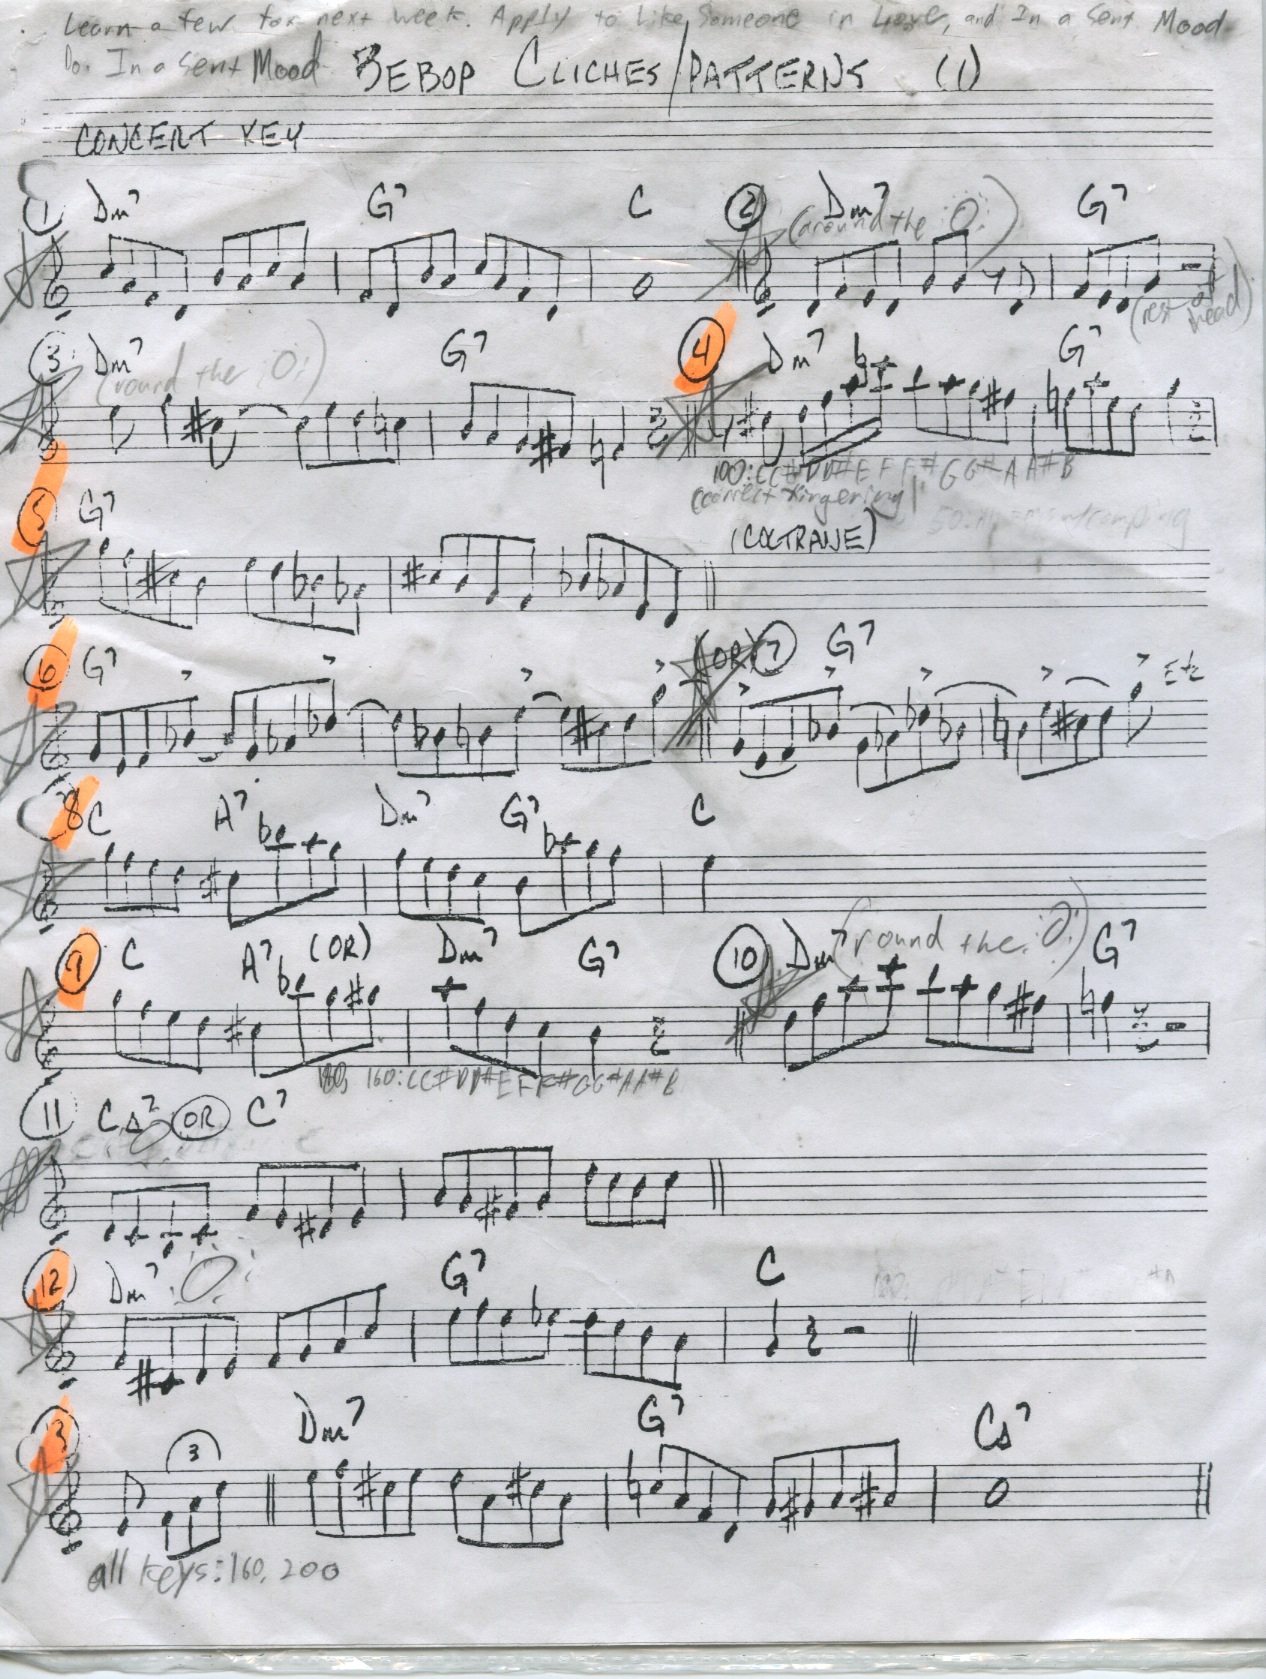 Learn a few for next week. Apply to Like Someone in Love, and In a Sent Mood
Do. In a Sent Mood BEBOP CLICHES/PATTERNS (1)
CONCERT KEY
1 Dm7 G7 C 2 Dm7 G7
(around the :O:)
(rest of head)
3 Dm7 G7 4 Dm7 G7
(round the :O:)
100: CC#DD#EFF#GG#AA#B
correct fingering!
5 G7 (COLTRANE)
6 G7 (OR) 7 G7 Etc
8 C A7 Dm7 G7 C
9 C A7 (OR) Dm7 G7 10 Dm7 (round the :O:) G7
180, 160: CC#DD#EFF#GG#AA#B
11 C△7 OR C7
12 Dm7 :O: G7 C
13 3 Dm7 G7 C△7
all keys: 160, 200